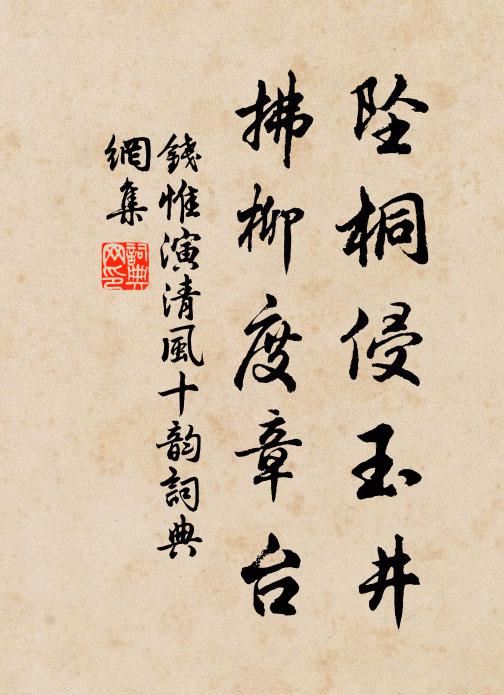 坠桐侵玉井
拂柳度章台
錢惟演清風十韵詞典
網集
詞典
网印